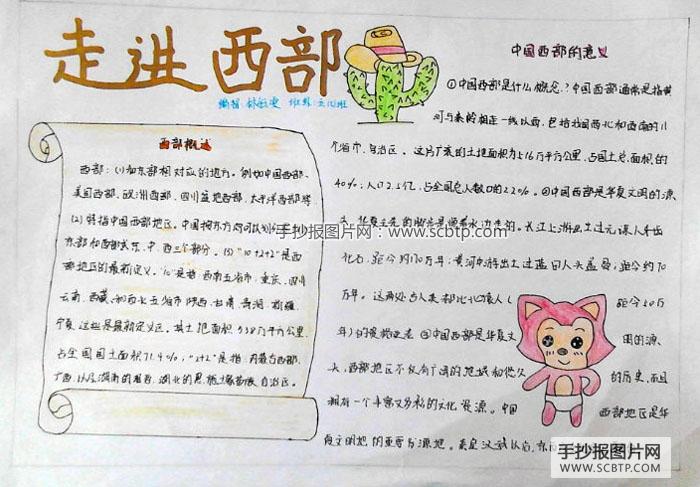 走进西部
编报 班级
西部概述
西部:(1)和东部相对应的地方。例如中国西部、
美国西部、欧洲西部、四川盆地西部、太平洋西部等
(2)特指中国西部地区。中国按东方
东部和西部 东、中、西三个部分。(3)“10+2+2”是西
部地区的最新定义。“10”是指:西南五省市:重庆、四川
云南、西藏 和西北五省市 陕西、甘肃、青海、新疆、
宁夏 这些是最新定义区。其土地面积 538万平方公里,
占全国国土面积71.4%;“2+2”是指:内蒙古西部、
广西,以及湖南的湘西、湖北的恩施土家苗族自治区。
中国西部的意义
①中国西部是什么概念?中国西部通常是指黄
河与秦岭相连一线以西,包括我国西北和西南的11
个省市、自治区。这片广袤的土地面积为516万平方公里,占国土总面积的
40%;人口2.5亿,占全国总人数口的22%。②中国西部是华夏文明的源
头,华夏先
长江上游出土过元谋人牙齿
化石,距今约170万年;黄河中游出土过蓝田人头盖骨,距今约70
万年。这两处古人类都比北京猿人(距今50万
年) ③中国西部是华夏文明的源
头,西部地区不仅有广阔的地域和悠久的历史,而且
拥有一个丰富又多彩的文化资源。中国西部地区是华
夏文明 的重要发源地。秦皇汉武以后,
手抄报图片网:www.scbtp.com
手抄报图片网
WWW.SCBTP.COM